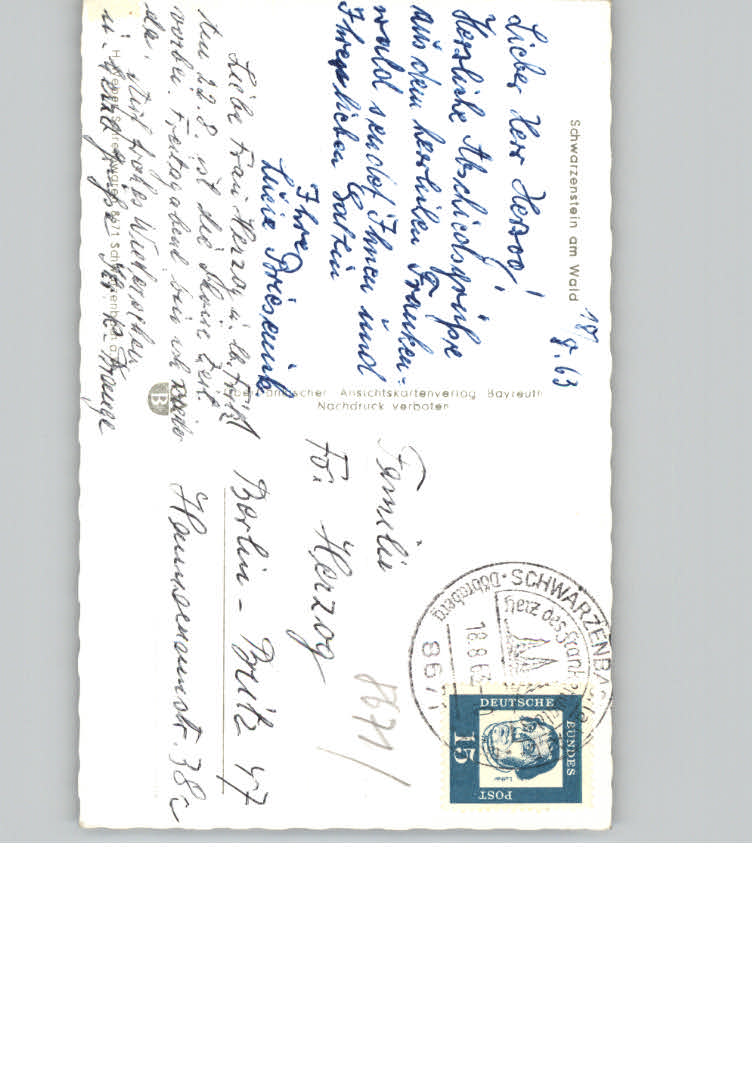 Schwarzenstein am Wald
18/8.63
Lieber Herr Herzog!
Herzliche Abschiedsgrüße
aus dem herrlichen Franken=
wald sendet Ihnen und
Ihrer lieben Gattin
Ihre
Lucie
Liebe Frau Herzog u. lb. Fritz!
Am 22.8. ist die schöne Zeit
vorbei. Freitagabend bin ich wieder
da. Auf frohes Wiedersehen
u. herzl. Grüße
8671
Oberfränkischer Ansichtskartenverlag Bayreuth
Nachdruck verboten
B
Familie
Fr. Herzog
Berlin - Britz 47
Hannemannstr. 38c
8671/
SCHWARZENBACH
Döbraberg
Herz des Frankenwaldes
18.8.63
8671
DEUTSCHE
BUNDES
POST
15
Luther